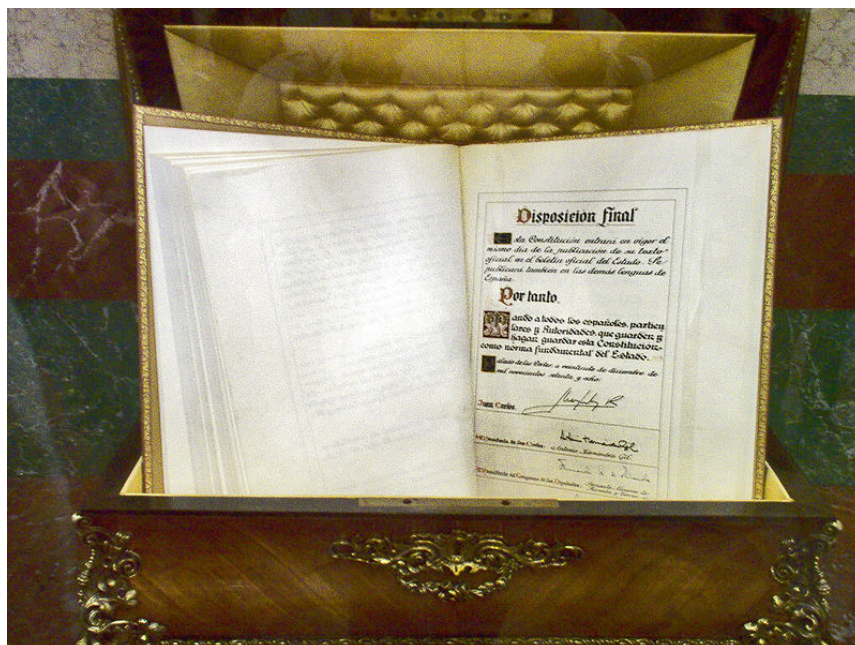 Disposición final
Esta Constitución entrará en vigor el
mismo día de la publicación de su texto
oficial en el boletín oficial del Estado. Se
publicará también en las demás lenguas de
España.
Por tanto,
Mando a todos los españoles, particu
lares y Autoridades, que guarden y
hagan guardar esta Constitución
como norma fundamental del Estado.
Palacio de las Cortes, a veintisiete de diciembre de
mil novecientos setenta y ocho.
Juan Carlos
El Presidente de las Cortes
Antonio Hernández Gil
El Presidente del Congreso de los Diputados
Fernando Álvarez de
Miranda y Torres